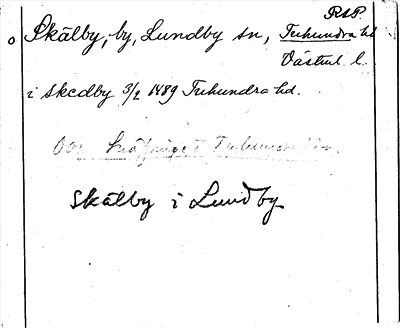 RSP.
o Skälby, by, Lundby sn, Tuhundra hd
Västml. l.
i skedby 3/2 1489 Tuhundra hd.
Tuhundra
Skälby i Lundby